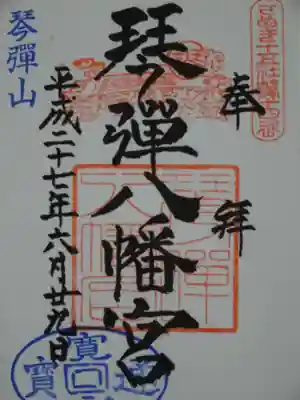 奉拝
琴彈八幡宮
平成二十七年六月廿九日
琴彈山
琴弾八幡宮